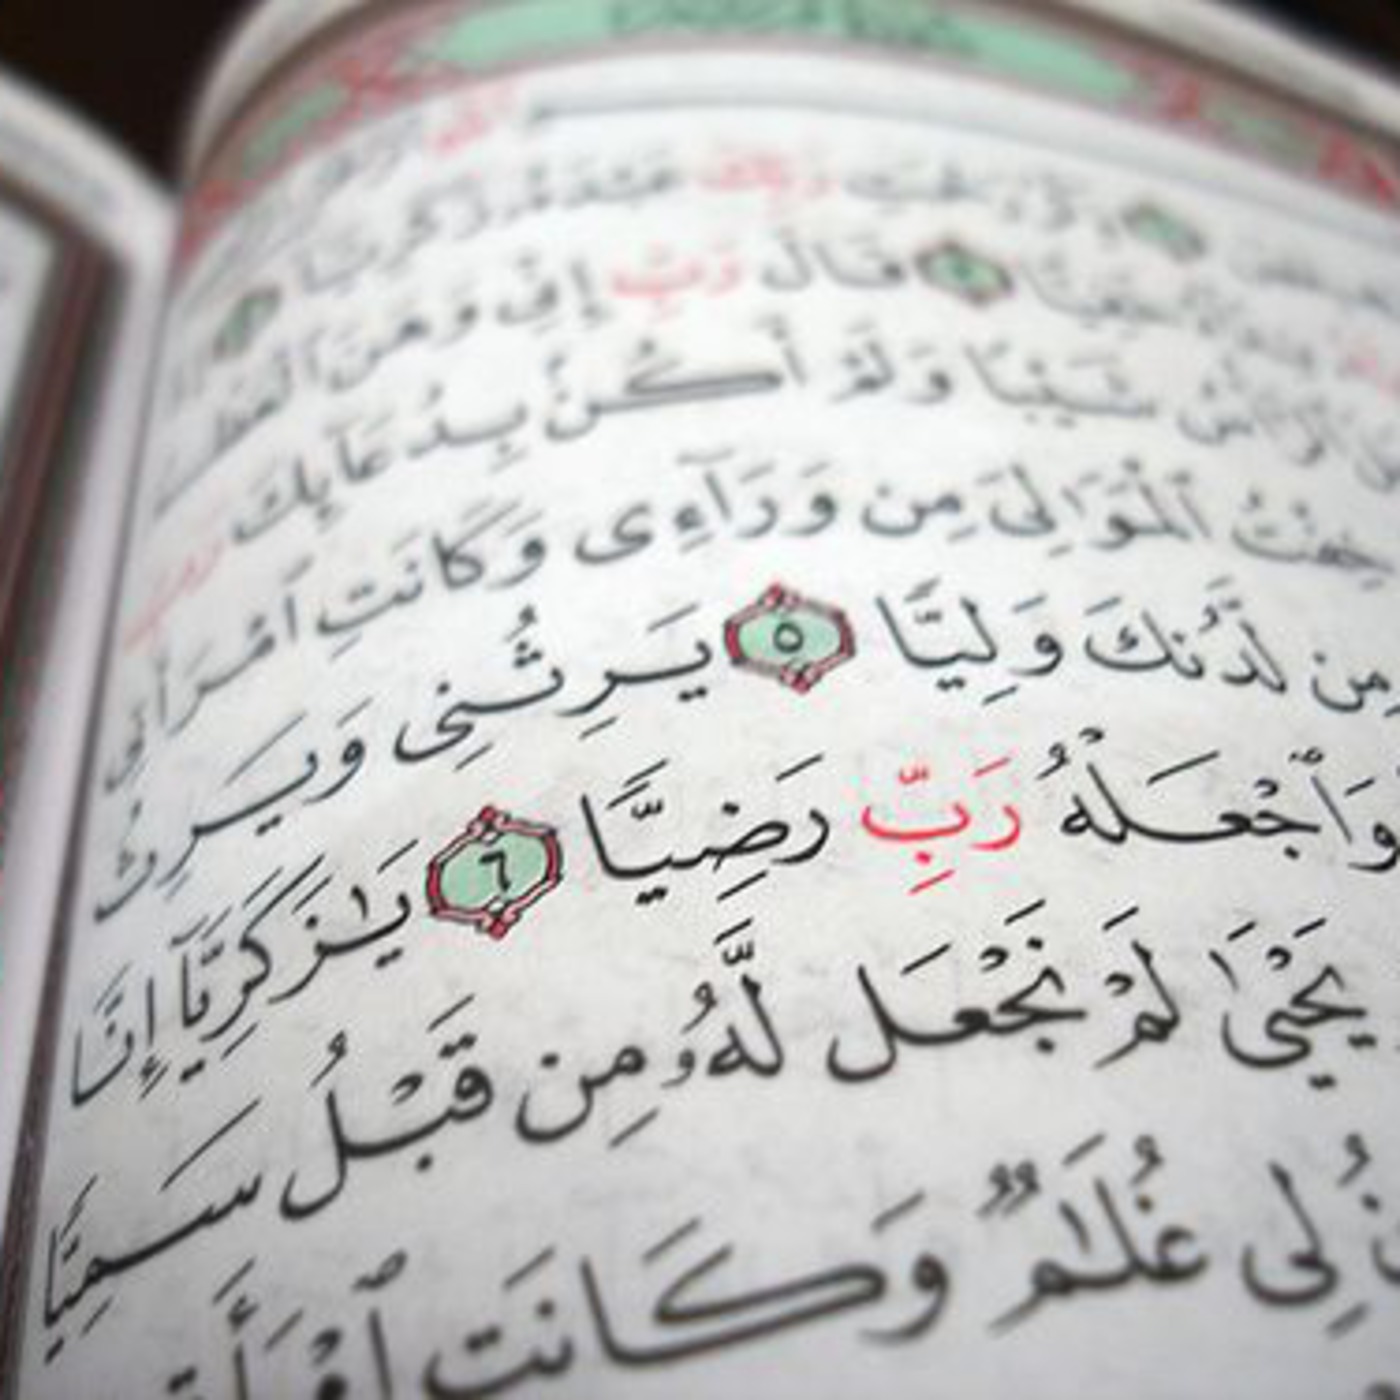 رَبِّكَ عَبْدَهُۥ زَكَرِيَّا
قَالَ رَبِّ إِنِّى وَهَنَ ٱلْعَظْمُ
شَيْبًا وَلَمْ أَكُنۢ بِدُعَآئِكَ رَبِّ
خِفْتُ ٱلْمَوَٰلِىَ مِن وَرَآءِى وَكَانَتِ ٱمْرَأَتِى
مِن لَّدُنكَ وَلِيًّا ٥ يَرِثُنِى وَيَرِثُ
وَٱجْعَلْهُ رَبِّ رَضِيًّا ٦ يَٰزَكَرِيَّآ إِنَّا
يَحْيَىٰ لَمْ نَجْعَل لَّهُۥ مِن قَبْلُ سَمِيًّا
لِى غُلَٰمٌ وَكَانَتِ ٱمْرَأَتِى